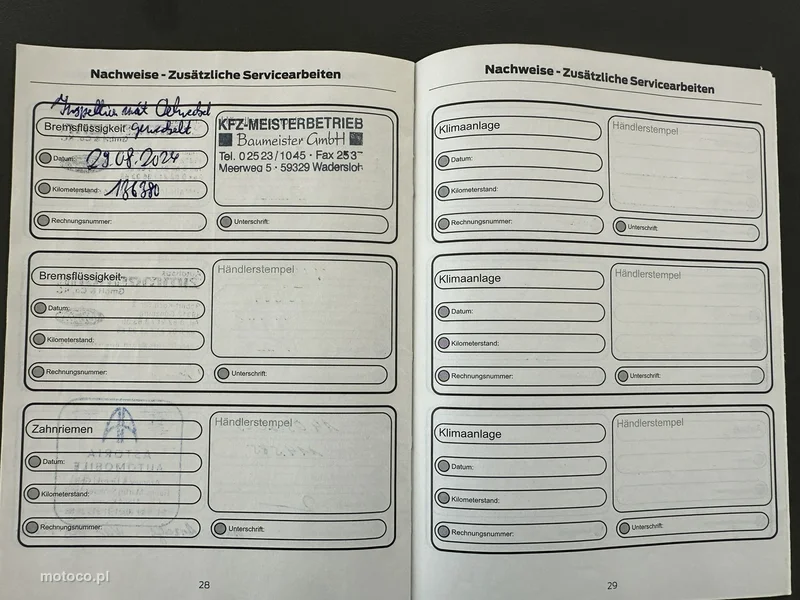 Nachweise - Zusätzliche Servicearbeiten
Inspektion mit Ölwechsel
Bremsflüssigkeit gewechselt
Datum: 29.08.2024
Kilometerstand: 136380
Rechnungsnummer:
KFZ-MEISTERBETRIEB
Baumeister GmbH
Tel. 02523/1045 · Fax 253
Meerweg 5 · 59329 Wadersloh
Unterschrift:
Bremsflüssigkeit
Datum:
Kilometerstand:
Rechnungsnummer:
Händlerstempel
Unterschrift:
Zahnriemen
Datum:
Kilometerstand:
Rechnungsnummer:
Händlerstempel
Unterschrift:
28
Nachweise - Zusätzliche Servicearbeiten
Klimaanlage
Datum:
Kilometerstand:
Rechnungsnummer:
Händlerstempel
Unterschrift:
Klimaanlage
Datum:
Kilometerstand:
Rechnungsnummer:
Händlerstempel
Unterschrift:
Klimaanlage
Datum:
Kilometerstand:
Rechnungsnummer:
Händlerstempel
Unterschrift:
29
motoco.pl